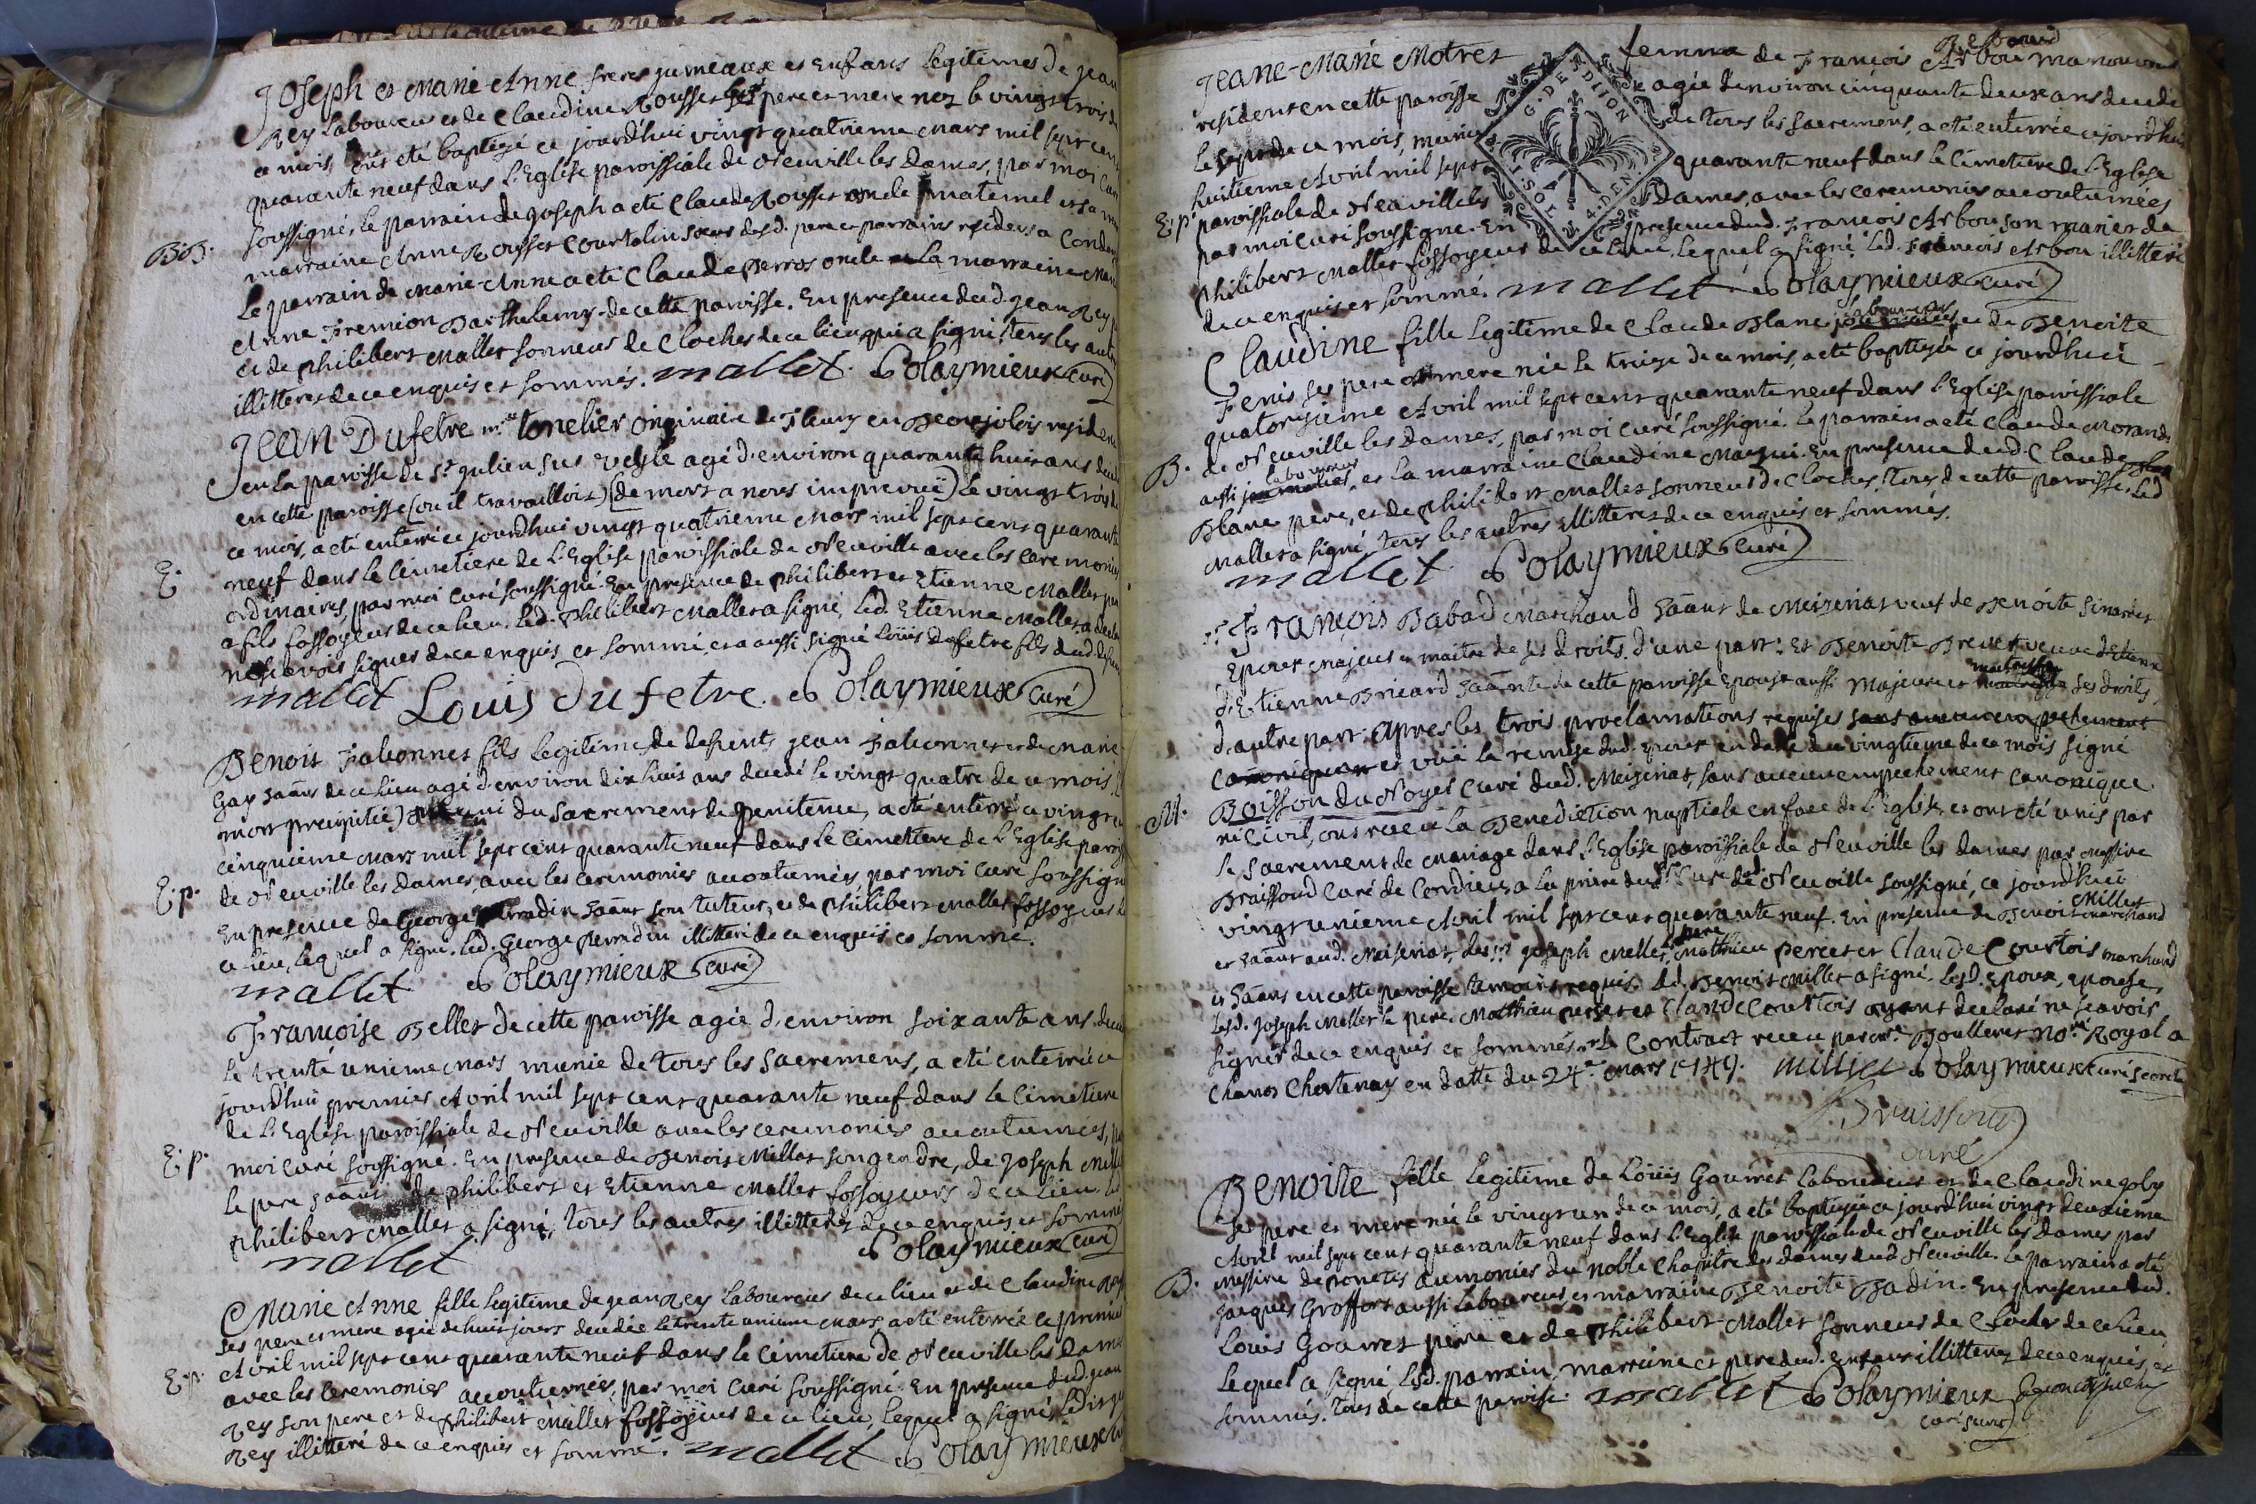 Joseph et Marie-Anne freres jumeaux et enfans legitimes de jean
Rey laboureur et de Claudine Rousset ses pere et mere nez le vingt trois de
ce mois, ont eté baptizé ce jourd'hui vingt quatrieme Mars mil sept cent
quarante neuf dans l'Eglise paroissiale de Neuville les Dames, par moi Curé
soussigné. le parrain de joseph a eté Claude Rousset oncle maternel et sa
marraine Anne Rousset Courtelin residens a Condei
BB.
Le parrain de Marie-Anne a eté Claude Perros oncle et la marraine Marie
Anne Fremion Barthelemy de cette paroisse. En presence dud. Jean Rey
et de philibert Mallet sonneur de Cloches de ce lieu qui a signé, tous les autres
illitteres de ce enquis et sommés. mallet. Polaymieux Curé
Jean Dufetre m.re tonelier originaire de Fleury en Beaujolois resident
en la paroisse de S.t Julien sus Veyle agé d'environ quarante huit ans decedé
en cette paroisse (ou il travailloit) (de mort a nous imprevuë) le vingt trois de
ce mois, a eté enterré ce jourdhui vingt quatrieme Mars mil sept cent quarante
E.
neuf dans le Cemetiere de l'Eglise paroissiale de Neuville avec les ceremonies
ordinaires, par moi curé soussigné. En presence de philibert et Etienne Mallet pere
a fils fossoyeurs de ce lieu. Led. Philibert Mallet a signé, Led. Etienne Mallet a declaré
ne sçavoir signer de ce enquis et sommé, et a aussi signé Loüis Dufetre fils dud. defunt
mallet Louis dufetre. Polaymieux Curé
Benoit Falconnet fils legitime de defunt jean Falconnet et de Marie
Gay de ce lieu agé d'environ dix huit ans decedé le vingt quatre de ce mois,
mort precipitée) muni du Sacrement de penitence, a eté enterré ce vingt
cinquieme Mars mil sept cent quarante neuf dans le Cimetiere de l'Eglise paroissiale
E. p.
de Neuville les Dames avec les ceremonies accoutumées, par moi Curé soussigné
En presence de George Perradin son tuteur, et de philibert Mallet fossoyeur de
ce lieu, lequel a signé. Led. George Perradin illitteré de ce enquis et sommé.
mallet. Polaymieux Curé
Francoise Bellet de cette paroisse agée d'environ soixante ans decedée
le trente unieme Mars munie de tous les Sacremens, a eté enterrée ce
jourdhui premier Avril mil sept cent quarante neuf dans le Cimetiere
de l'Eglise paroissiale de Neuville avec les ceremonies accoutumées, par
E. p.
moi curé soussigné. En presence de Benoit Millet son gendre, de Joseph Millet
le pere de philibert et Etienne Mallet fossoyeurs de ce lieu. Led.
philibert Mallet a signé, tous les autres illitterés de ce enquis et sommés
mallet Polaymieux Curé
Marie Anne fille legitime de jean Rey laboureur de ce lieu et de Claudine
ses pere et mere agée de huit jours decedée le trente unieme Mars a eté enterrée ce premier
E. p.
Avril mil sept cent quarante neuf dans le Cimetiere de Neuville les Dames
avec les Ceremonies accoutumées, par moi Curé soussigné. En presence dud. jean
Rey son pere et de philibert Mallet fossoyeur de ce lieu, lequel a signé, ledit jean
Rey illitteré de ce enquis et sommé. mallet Polaymieux
Jeane-Marie Motret femme de François Arbou manouvrier
residente en cette paroisse agée d'environ cinquante deux ans decedée
le sept de ce mois, munie de tous les sacremens, a eté enterrée ce jourd'hui
huitieme Avril mil sept quarante neuf dans le Cimetiere de l'Eglise
E. p.
paroissiale de Neuville les Dames, avec les ceremonies accoutumées
par moi curé soussigné. En presence dud. François Arbou son mari et de
philibert Mallet fossoyeur de ce lieu, lequel a signé, Led. François Arbou illitteré
de ce enquis et sommé. mallet Polaymieux Curé
G. DE DIJON
I. SOL 4. DEN
Claudine fille legitime de Claude Blanc laboureur et de Benoite
Fenis ses pere et mere née le treize de ce mois, a eté baptizée ce jourd'hui
quatorzieme Avril mil sept cent quarante neuf dans l'Eglise paroissiale
de Neuville les Dames, par moi curé soussigné. Le parrain a eté Claude Morand
B.
aussi laboureur, et la marraine Claudine Mazui. En presence dud. Claude
Blanc pere, et de philibert Mallet sonneur de Cloches, tous de cette paroisse, Led
Mallet a signé, tous les autres illitteres de ce enquis et sommés.
mallet Polaymieux Curé
s.r François Babad Marchand de Meizeriat veuf de Benoite
Epoux majeur et maitre de ses droits, d'une part: Et Benoite Brevet veuve d'Etienne
d'Etienne Bricard de cette paroisse Epouse aussi Majeure et maitresse de ses droits,
d'autre part: Apres les trois proclamations requises sans aucun empechement
canonique et vûë la remise dud. Epoux en date du vingtieme de ce mois signé
Boisson du Noyer Curé dud. Meizeriat, sans aucun empechement canonique
M.
ni civil, ont reçu la Benediction nuptiale en face de l'Eglise, et ont eté unis par
le Sacrement de Mariage dans l'Eglise paroissiale de Neuville les dames par Messire
Braissoud Curé de Condeissia a la priere dud. s.r Curé de Neuville soussigné, ce jourd'hui
vingt unieme Avril mil sept cent quarante neuf. En presence de Benoit Millet marchand
et aud. Meiseriat, des s.rs joseph Mellet pere, Mathieu Percet et Claude Courtois marchand
et en cette paroisse temoins requis. Led. Benoit Millet a signé. Lesd. Epoux, epouse,
Lesd. Joseph Mellet le pere, Matthieu Percet et Claude Courtois ayant declaré ne sçavoir
signer de ce enquis et sommés. le Contract recu par m.e Boulleret No.re Royal a
Chanoz Chatenay en datte du 24.e Mars 1749. millet Polaymieux Curé
Braissoud
curé
Benoite fille legitime de Loüis Gourret laboureur et de Claudine goly
ses pere et mere née le vingt un de ce mois, a eté baptizée ce jourd'hui vingt deuxieme
Avril mil sept cent quarante neuf dans l'Eglise paroissiale de Neuville les dames par
B.
messire Deponcets aumonier du noble Chapitre des dames dud. Neuville. Le parrain a eté
jacques Groffort aussi laboureur et marraine Benoite Badin. En presence dud.
Louis Gourret pere et de Philibert Mallet sonneur de Cloches de ce lieu
lequel a signé, Lesd. parrain, marraine et pere dud. Enfant illitteres de ce enquis et
sommés. tous de cette paroisse. mallet Polaymieux